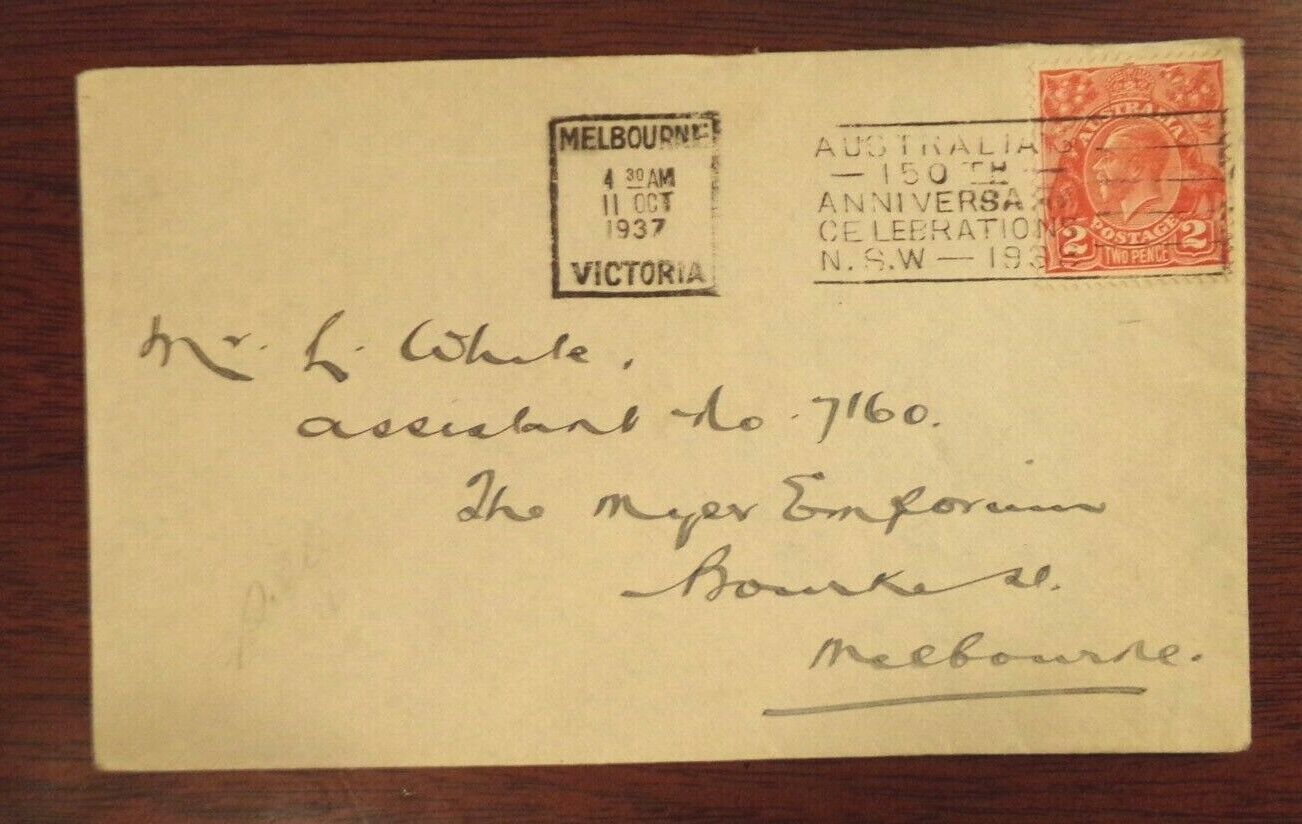 MELBOURNE
4 30 AM
11 OCT
1937
VICTORIA
AUSTRALIA'S
— 150TH —
ANNIVERSARY
CELEBRATIONS
N.S.W — 1938
AUSTRALIA
POSTAGE
2 TWO PENCE 2
Mr. L. White,
assistant No. 7160.
The Myer Emporium
Bourke St.
Melbourne.